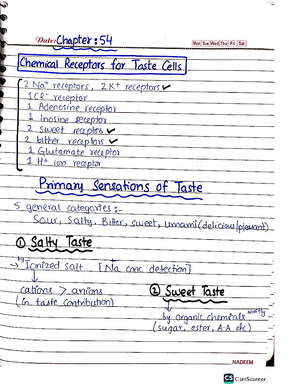 Date: Chapter: 54
Mon Tue Wed Thu Fri Sat
Chemical Receptors for Taste Cells
2 Na⁺ receptors, 2 K⁺ receptors ✓
1 Cl⁻ receptor
1 Adenosine receptor
1 Inosine receptor
2 sweet receptors ✓
2 bitter receptors ✓
1 Glutamate receptor
1 H⁺ ion receptor
Primary Sensations of Taste
5 general categories:-
Sour, Salty, Bitter, sweet, umami (delicious/pleasant)
① Salty Taste
→ by Ionized salt [Na conc detection]
↓
cations > anions
(in taste contribution)
② Sweet Taste
↓
by organic chemicals mostly
(sugar, ester, A.A. etc)
NADEEM
CS CamScanner